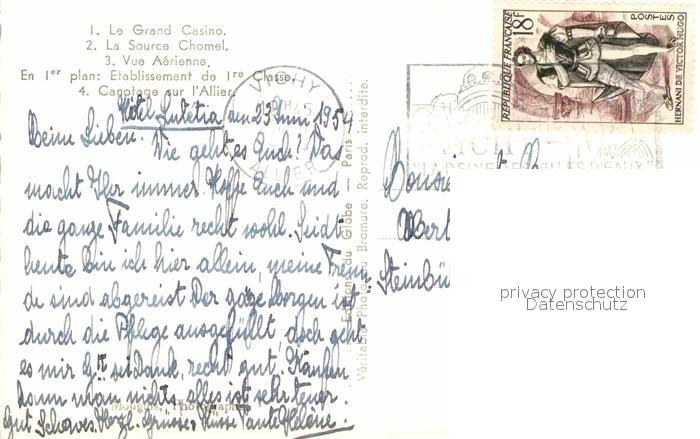 1. Le Grand Casino.
2. La Source Chomel.
3. Vue Aérienne.
En 1er plan: Etablissement de 1re Classe.
4. Canotage sur l'Allier.
VICHY
ALLIER
RÉPUBLIQUE FRANÇAISE
18F
POSTES
HERNANI DE VICTOR HUGO
Hôtel Lutetia, am 23 Juni 1954
Meine Lieben. Wie geht es Euch? Was
macht Ihr immer. Hoffe Euch und
die ganze Familie recht wohl. Seidt
heute bin ich hier allein, meine Freun
de sind abgereist. Der ganze Morgen ist
durch die Pflege ausgefüllt, doch geht
es mir Gtt sei Dank, recht gut. Kaufen
kann man nichts alles ist sehr teuer.
Gut Herzl. Grüsse, Küsse Tante Helene.
Mouguis, Photographe
Editions du Globe — Paris
Véritable Photo au Bromure. Reprod. interdite.
Albert
Steinbü
privacy protection
Datenschutz